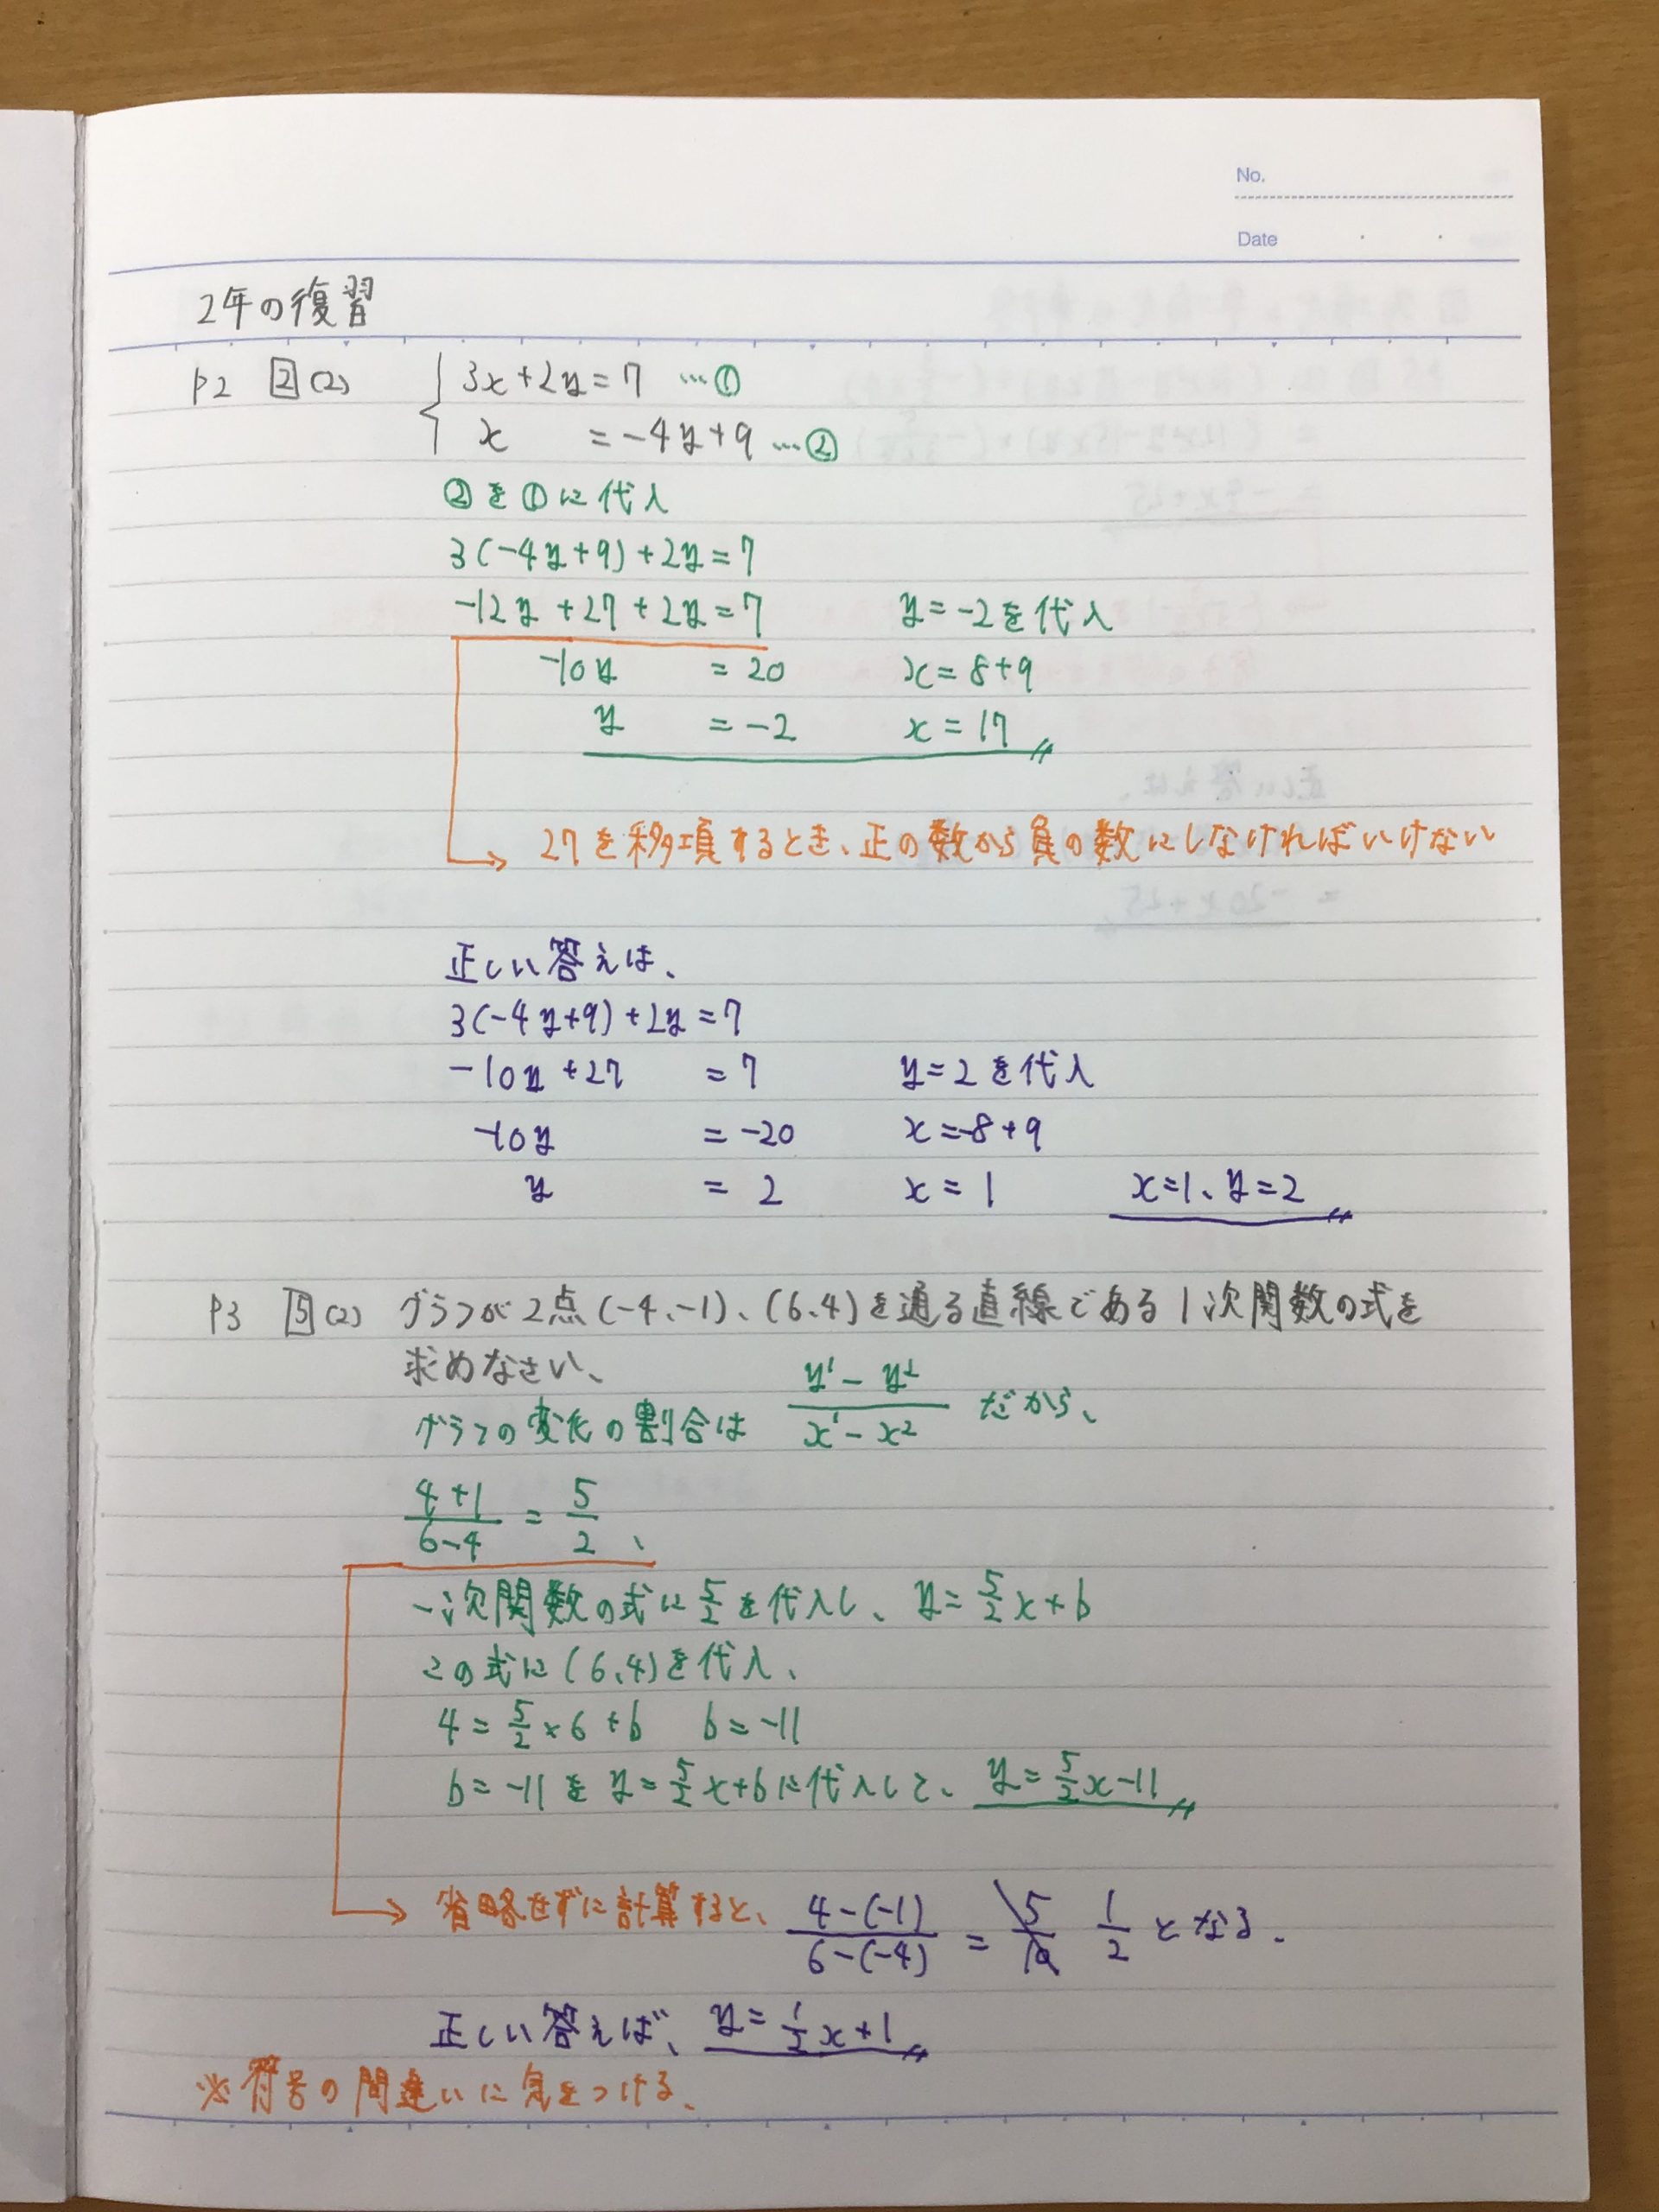 No.
Date
2年の復習
P2 2 (2) 3x+2y=7 …①
x =-4y+9 …②
②を①に代入
3(-4y+9)+2y=7
-12y+27+2y=7 y=-2を代入
-10y =20 x=8+9
y =-2 x=17
27を移項するとき、正の数から負の数にしなければいけない
正しい答えは、
3(-4y+9)+2y=7
-10y+27 =7 y=2を代入
-10y =-20 x=-8+9
y =2 x=1 x=1、y=2
P3 5 (2) グラフが2点(-4、-1)、(6、4)を通る直線である1次関数の式を
求めなさい、
グラフの変化の割合は (y¹-y²)/(x¹-x²) だから、
(4+1)/(6-4) = 5/2、
一次関数の式に5/2を代入し、y=5/2x+b
この式に(6、4)を代入、
4=5/2×6+b b=-11
b=-11をy=5/2x+bに代入して、y=5/2x-11
省略せずに計算すると、(4-(-1))/(6-(-4)) = 5/10 1/2となる.
正しい答えば、y=1/2x+1
※符号の間違いに気をつける、